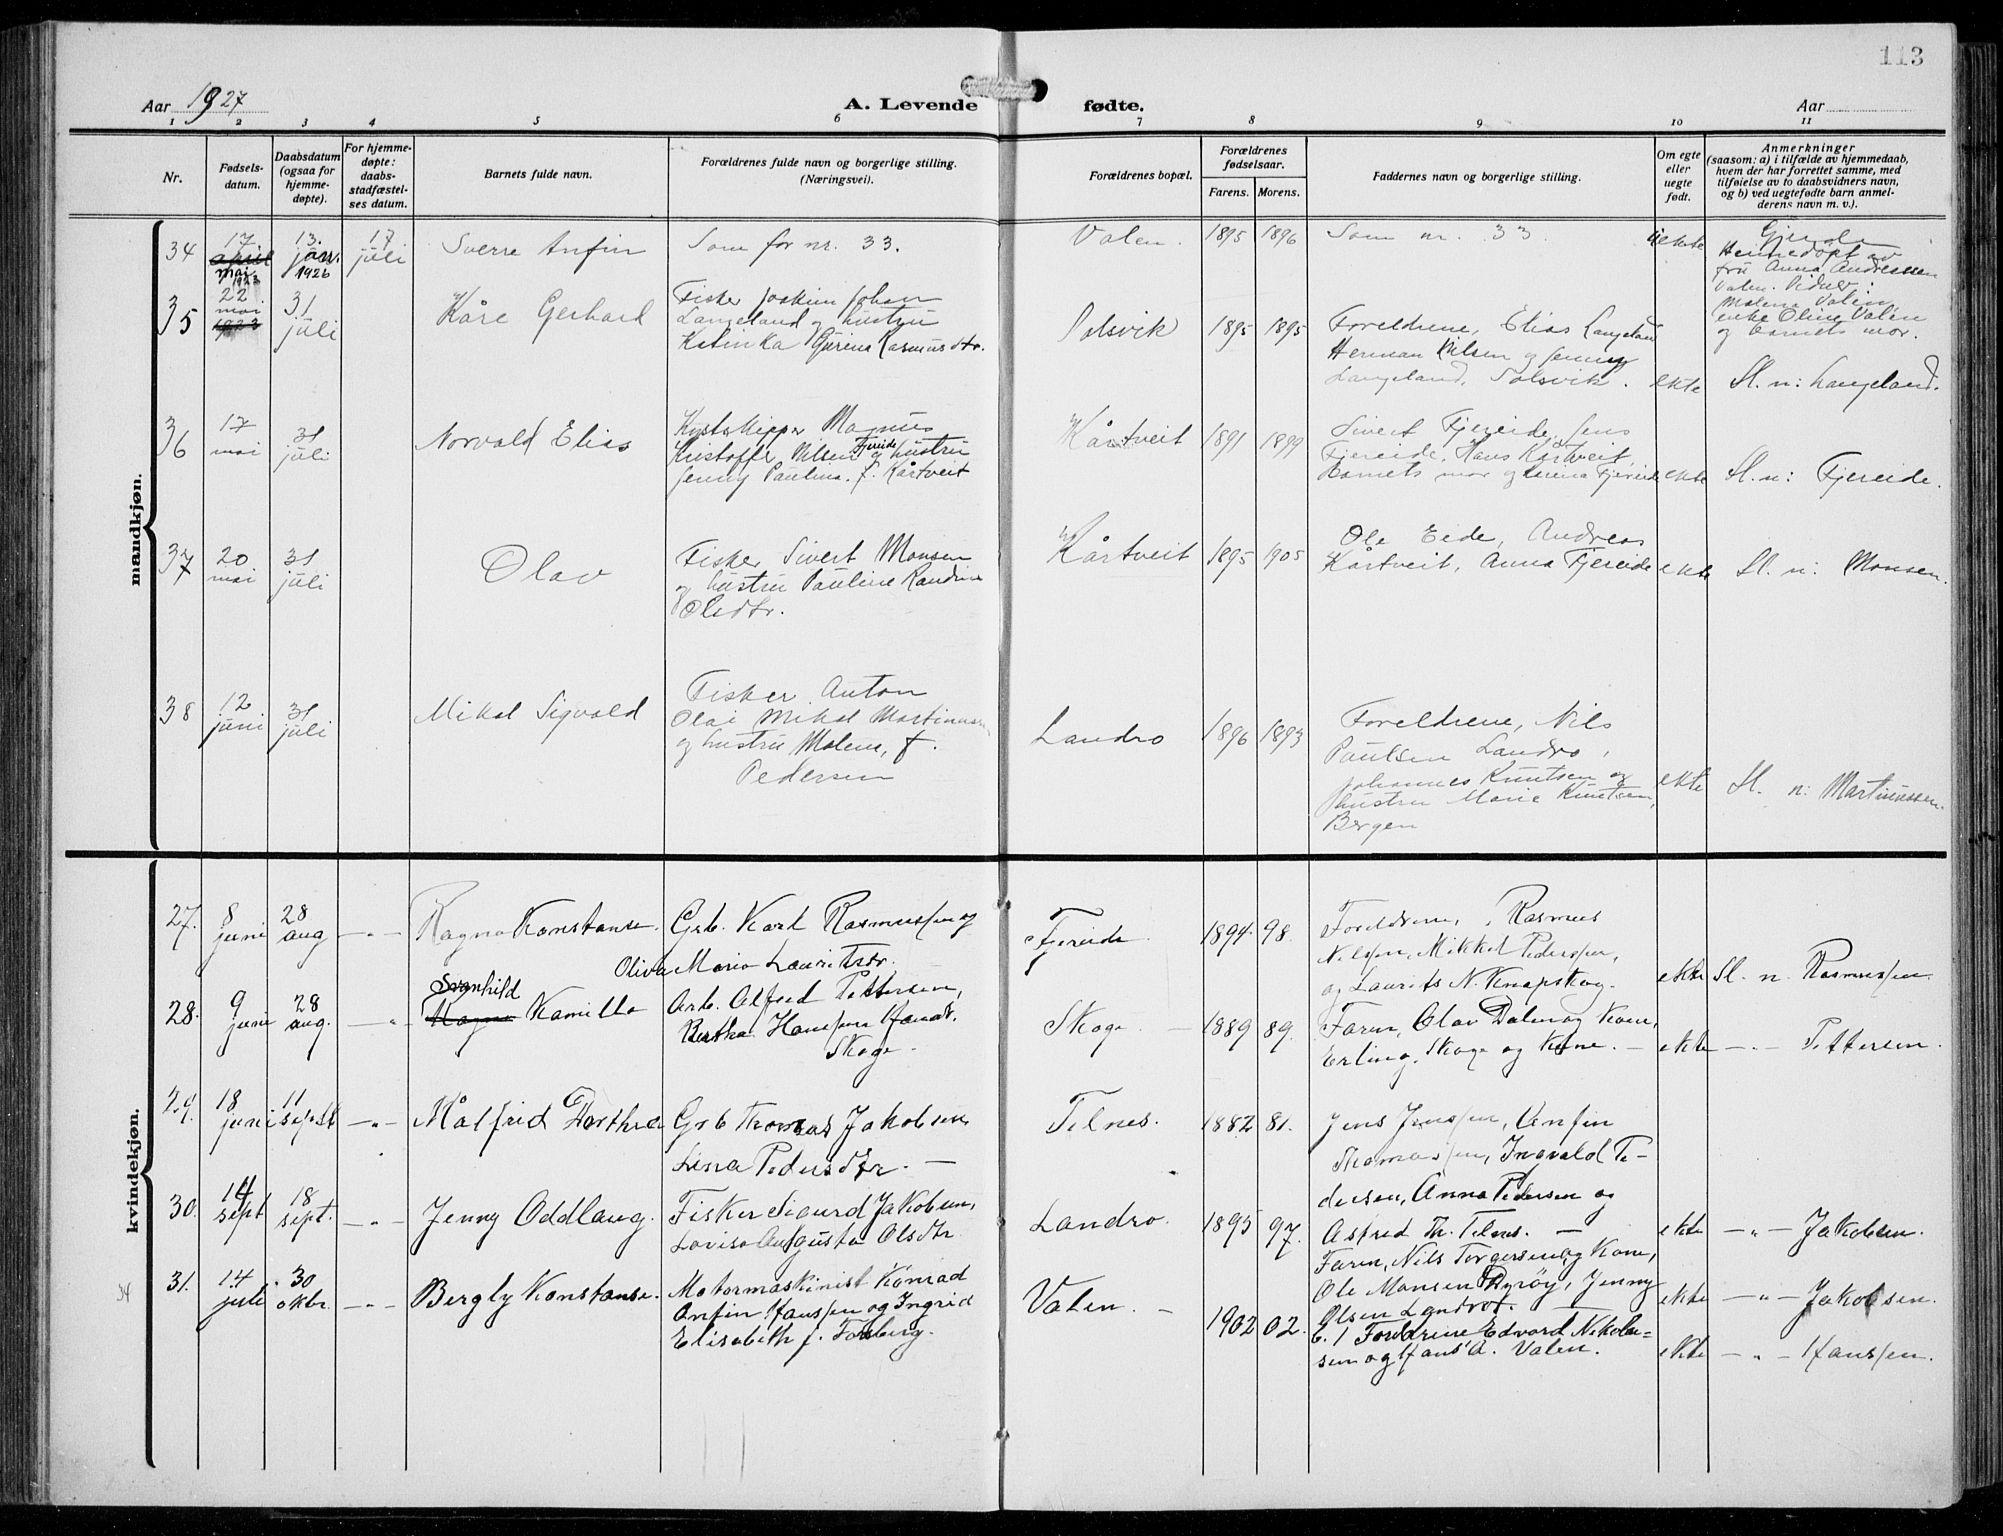 113
Aar 1927
A. Levende fødte.
Aar
1 2 3 4 5 6 7 8 9 10 11
Nr.
Fødsels-
datum.
Daabsdatum
(ogsaa for
hjemme-
døpte).
For hjemme-
døpte:
daabs-
stadfæstel-
ses datum.
Barnets fulde navn.
Forældrenes fulde navn og borgerlige stilling.
(Næringsvei).
Forældrenes bopæl.
Forældrenes
fødselsaar.
Farens. Morens.
Faddernes navn og borgerlige stilling.
Om egte
eller
uegte
født.
Anmerkninger
(saasom: a) i tilfælde av hjemmedaab,
hvem der har forrettet samme, med
tilføielse av to daabsvidners navn,
og b) ved uegtefødte barn anmel-
derens navn m. v.).
mandkjøn.
34
17
april
mai
1923
13.
jan.
1926
17
juli
Sverre Anfin
Som for nr. 33.
Valen.
1895 1896
Som nr. 33
uekte
Gjerde
Hjemmedøpt av
fru Anna Andreassen
Valen. Vidner:
Malena Valen
enke Oline Valen
og barnets mor.
35
22
mai
1923
31
juli
Kåre Gerhard
Fisker Joakim Johan
Langeland og hustru
Katinka Gurena Rasmusdtr.
Solsvik
1895 1895
Foreldrene, Elias Langeland
Herman Nilsen og Jenny
Langeland, Solsvik.
ekte
Sl. n: Langeland.
36
17
mai
31
juli
Norvald Elias
Kystskipper Magnus
Kristoffer Nilsen Fjereide og hustru
Jenny Paulina f. Kårtveit
Kårtveit
1891 1899
Sivert Fjereide, Jens
Fjereide, Hans Kårtveit
Barnets mor og Fjereide
ekte
Sl. n: Fjereide.
37
20
mai
31
juli
Olav
Fisker Sivert Monsen
og hustru Pauline Randine
Olsdtr.
Kårtveit
1895 1905
Ole Eide, Andreas
Kårtveit, Anna Fjereide
ekte
Sl. n: Monsen.
38
12
juni
31
juli
Mikal Sigvald
Fisker Anton
Olai Mikal Martinussen
og hustru Malene, f.
Pedersen
Landro
1896 1893
Foreldrene, Nils
Paulsen Landro,
Johannes Knutsen og
hustru Marie Knutsen,
Bergen
ekte
Sl. n: Martinussen.
kvindekjøn.
27.
8
juni
28
aug
— „ —
Ragna Konstanse.
Grb. Karl Rasmussen og
Oliva Maria Lauritsdtr.
Fjereide.
1894. 98.
Foreldrene, Rasmus
Nilssen, Mikkel Pederssen,
og Laurits N. Knapskog.
ekte
Sl. n. Rasmussen
28.
9
juni
28
aug.
— „
Svanhild
Magna Kamilla
Arb. Alfred Pettersen,
Bertha Hanssen
Skoge.
Skoge
1889 89.
Faren, Olav Dalen og Kone,
Erling Skoge og Kone. —
ekte
— „ — Pettersen.
29.
18
juni
11
septbr
— „ —
Målfrid Dorthea
Grb Thomas Jakobsen,
Lina Pedersdtr. —
Telnes.
1882 81.
Jens Jenssen, Anfin
Thomassen, Ingvald Pe-
dersen, Anna Pedersen og
Astrid Th. Telnes. —
ekte
— „ — Jakobsen.
30.
14
sept
18
sept.
— „ —
Jenny Oddlaug.
Fisker Sigurd Jakobsen,
Lovisa Augusta Olsdtr
Landro.
1895 97.
Faren, Nils Torgersen og Kone,
Ole Monsen Pyrøy, Jenny
Olsen Landro. —
ekte
— „ — Jakobsen.
34
31.
14
juli
30
oktbr.
— „ —
Bergly Konstanse.
Motormaskinist Konrad
Anfin Hanssen og Ingrid
Elisabeth f. Forberg.
Valen. —
1902 02.
E. / Foreldrene Edvard Nikolai-
sen og Hans A. Valen.
ekte
— „ — Hanssen.